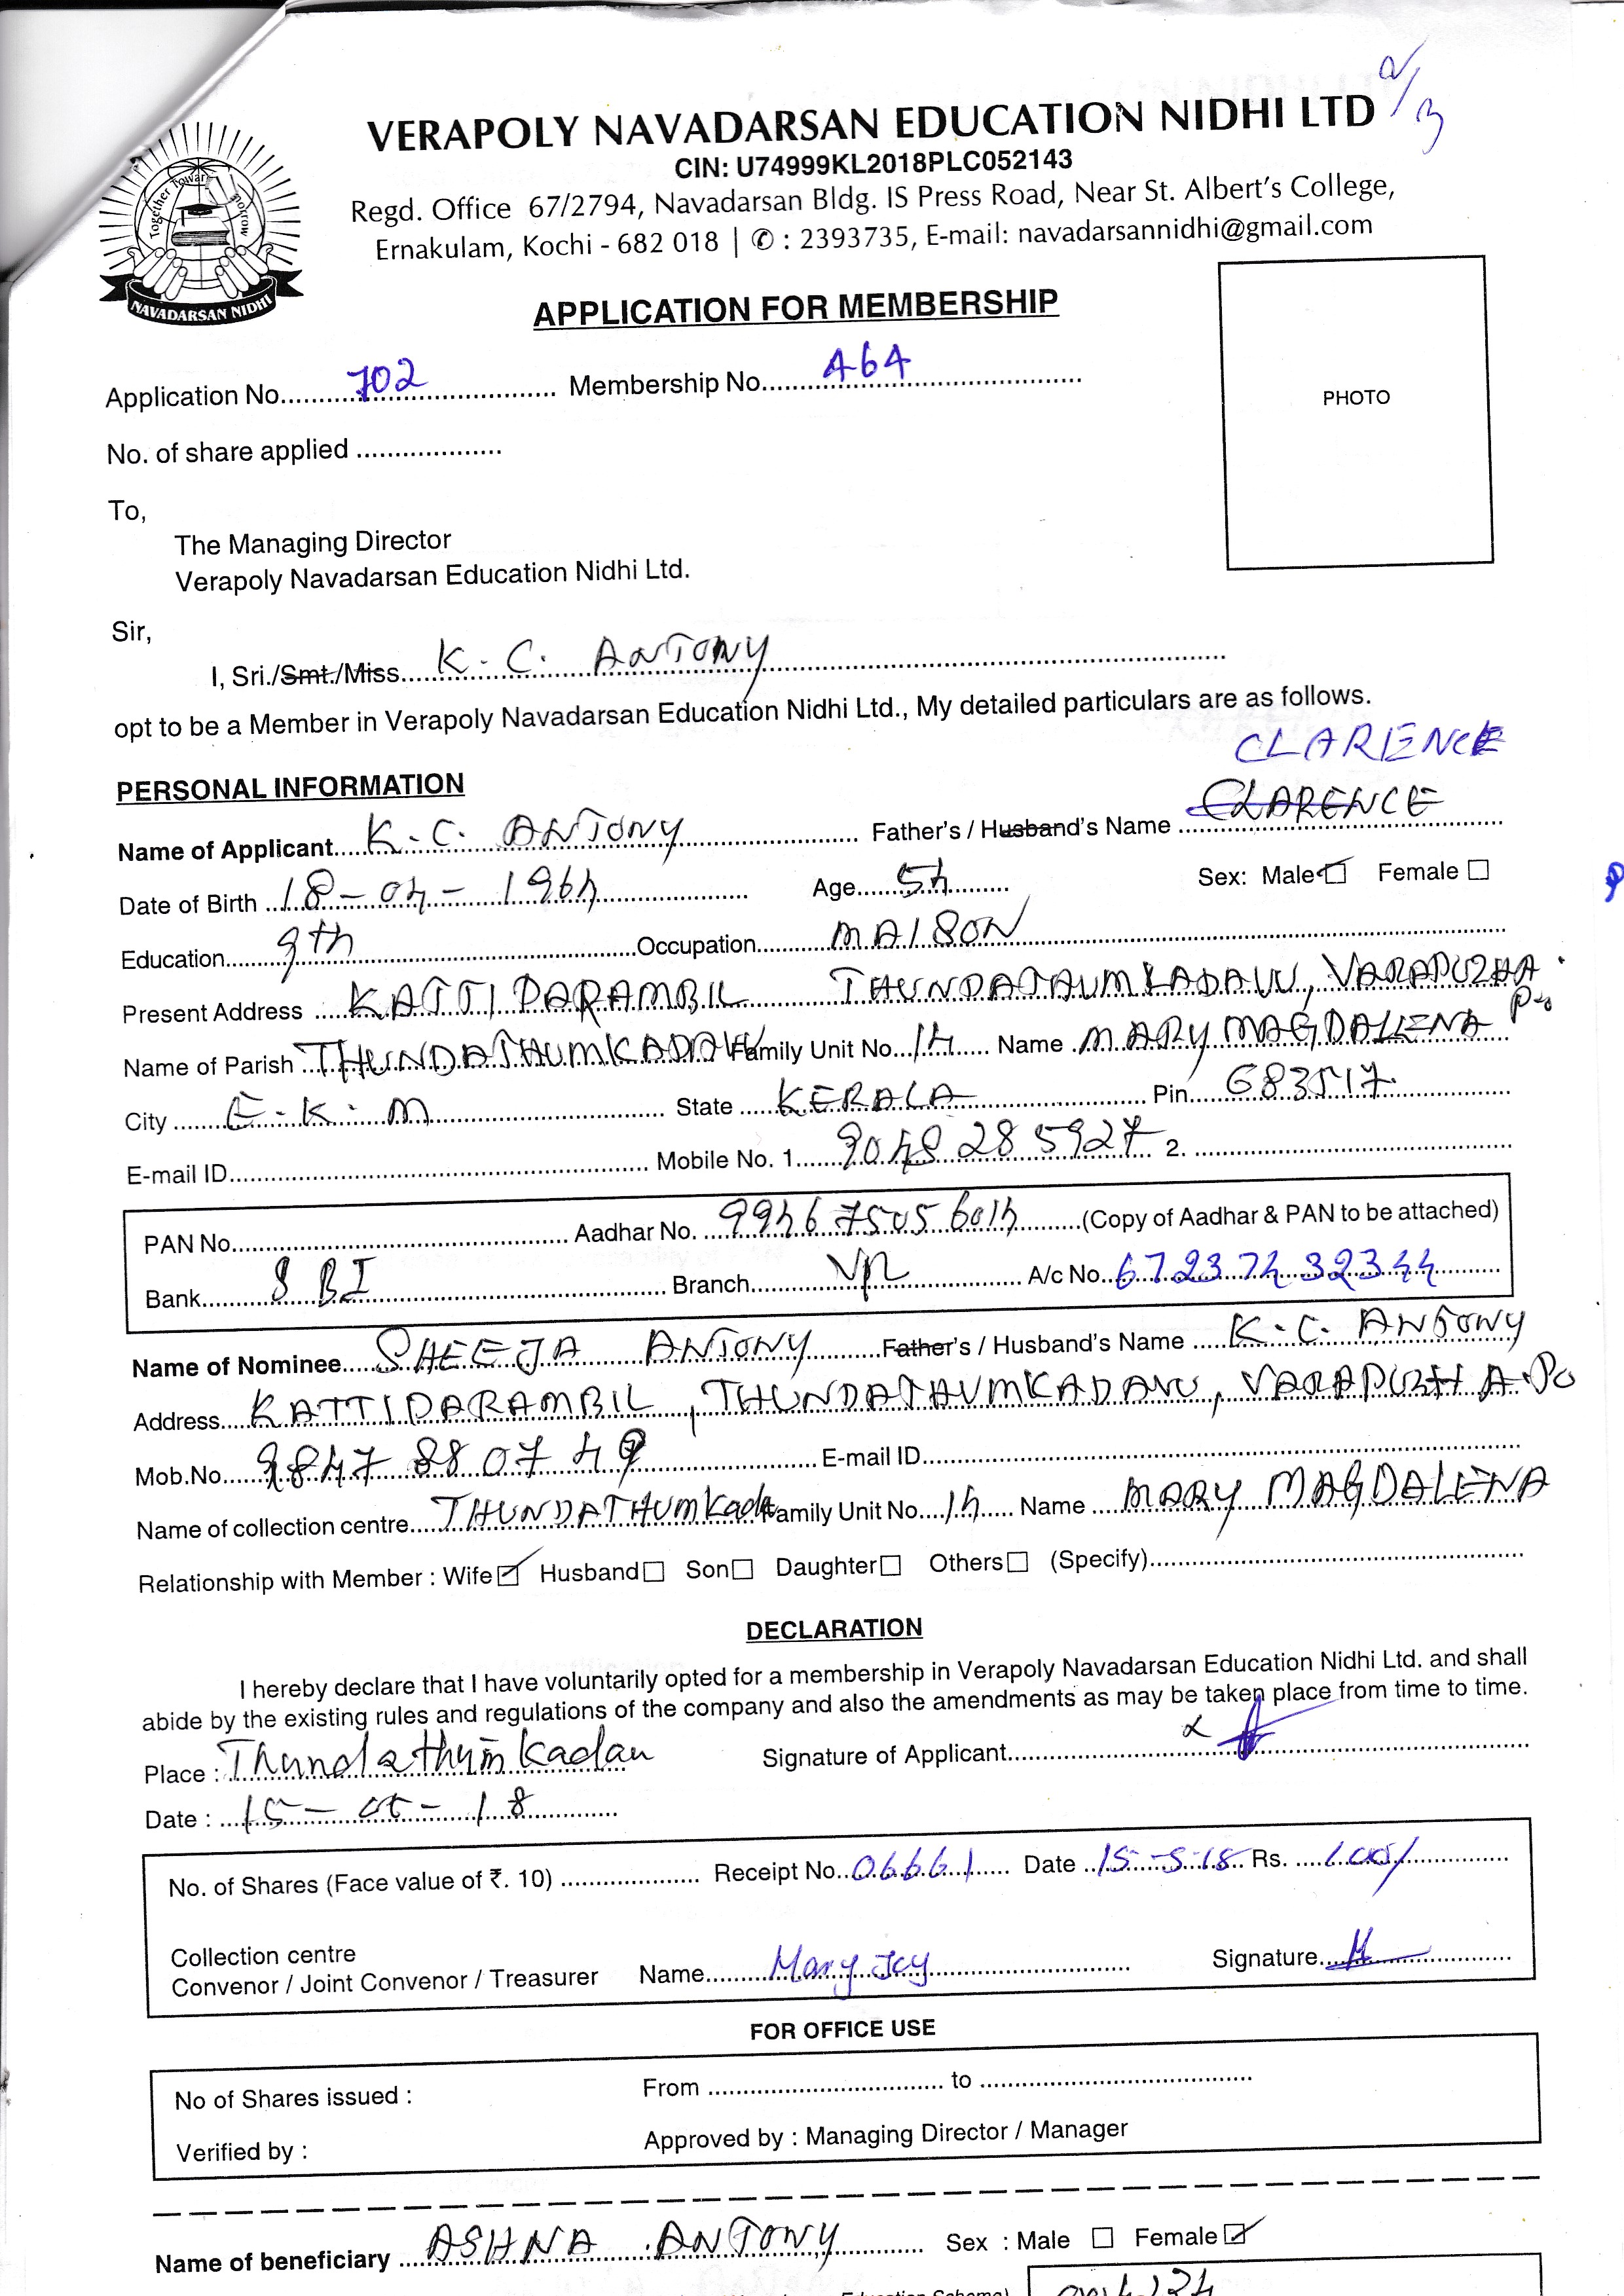 VERAPOLY NAVADARSAN EDUCATION NIDHI LTD
CIN: U74999KL2018PLC052143
Regd. Office 67/2794, Navadarsan Bldg. IS Press Road, Near St. Albert's College,
Ernakulam, Kochi - 682 018 | ✆ : 2393735, E-mail: navadarsannidhi@gmail.com
NAVADARSAN NIDHI
APPLICATION FOR MEMBERSHIP
Application No. 702 Membership No. 464
PHOTO
No. of share applied
To,
The Managing Director
Verapoly Navadarsan Education Nidhi Ltd.
Sir,
I, Sri./Smt./Miss. K. C. ANTONY
opt to be a Member in Verapoly Navadarsan Education Nidhi Ltd., My detailed particulars are as follows.
CLARENCE
PERSONAL INFORMATION
Name of Applicant K. C. ANTONY Father's / Husband's Name CLARENCE
Date of Birth 18-04-1964 Age 54 Sex: Male Female
Education 9th Occupation MAISON
Present Address KATTIPARAMBIL THUNDATHUMKADAVU, VARAPUZHA Po
Name of Parish THUNDATHUMKADAVU Family Unit No. 14 Name MARY MAGDALLENA
City E.K.M State KERALA Pin 683517
E-mail ID Mobile No. 1. 9048285927 2.
PAN No. Aadhar No. 994675056014 (Copy of Aadhar & PAN to be attached)
Bank SBI Branch A/c No. 67237432344
Name of Nominee SHEEJA ANTONY Father's / Husband's Name K. C. ANTONY
Address KATTIPARAMBIL, THUNDATHUMKADAVU, VARAPUZHA Po
Mob.No. 9847880749 E-mail ID
Name of collection centre THUNDATHUMKada Family Unit No. 14 Name MARY MAGDALENA
Relationship with Member : Wife Husband Son Daughter Others (Specify)
DECLARATION
I hereby declare that I have voluntarily opted for a membership in Verapoly Navadarsan Education Nidhi Ltd. and shall
abide by the existing rules and regulations of the company and also the amendments as may be taken place from time to time.
Place : Thundathumkadau Signature of Applicant
Date : 15-05-18
No. of Shares (Face value of ₹. 10) Receipt No. 06661 Date 15-5-18 Rs. 100/
Collection centre
Convenor / Joint Convenor / Treasurer Name Mary Joy Signature
FOR OFFICE USE
No of Shares issued : From to
Verified by : Approved by : Managing Director / Manager
Name of beneficiary ASHNA ANTONY Sex : Male Female